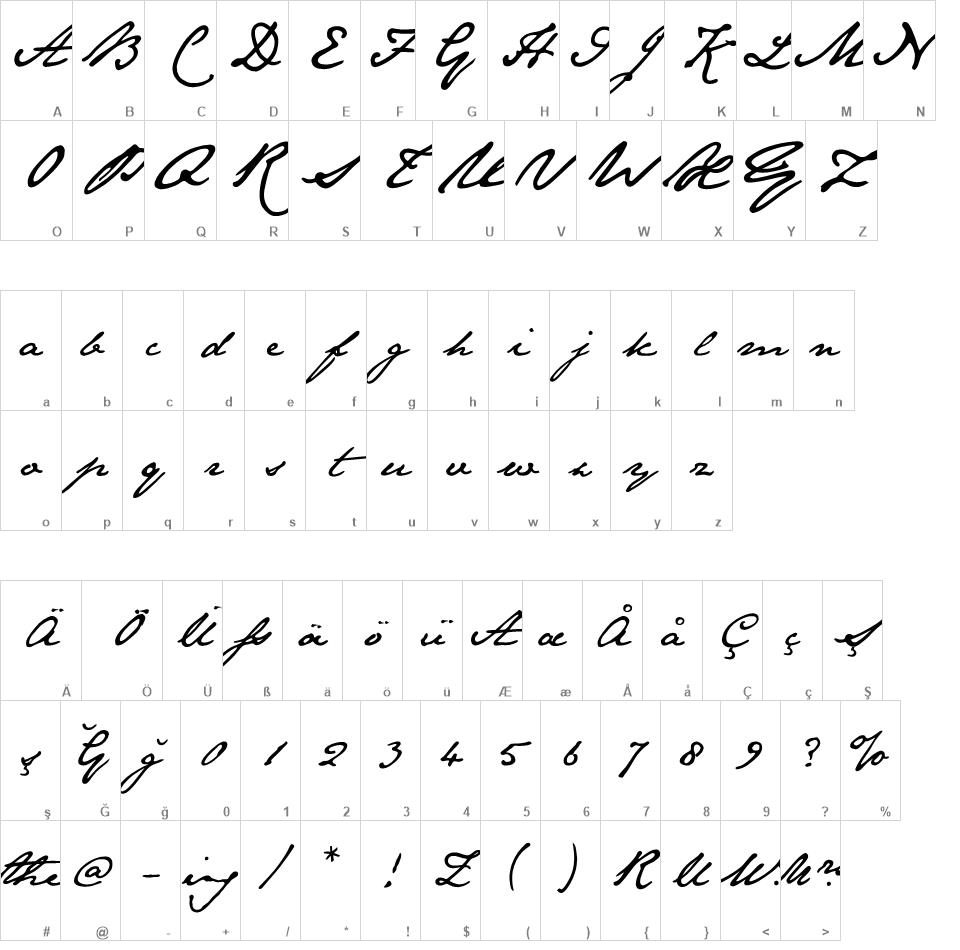 A B C D E F G H I J K L M N
A B C D E F G H I J K L M N
O P Q R S T U V W Æ Y Z
O P Q R S T U V W X Y Z
a b c d e f g h i j k l m n
a b c d e f g h i j k l m n
o p q r s t u v w x y z
o p q r s t u v w x y z
Ä Ö Ü ß ä ö ü Æ æ Å å Ç ç Ş
Ä Ö Ü ß ä ö ü Æ æ Å å Ç ç Ş
ş Ğ ğ 0 1 2 3 4 5 6 7 8 9 ? %
ş Ğ ğ 0 1 2 3 4 5 6 7 8 9 ? %
the @ - ing / * ! L ( ) R U W. Mr.
# @ - + / * ! $ ( ) { } < >